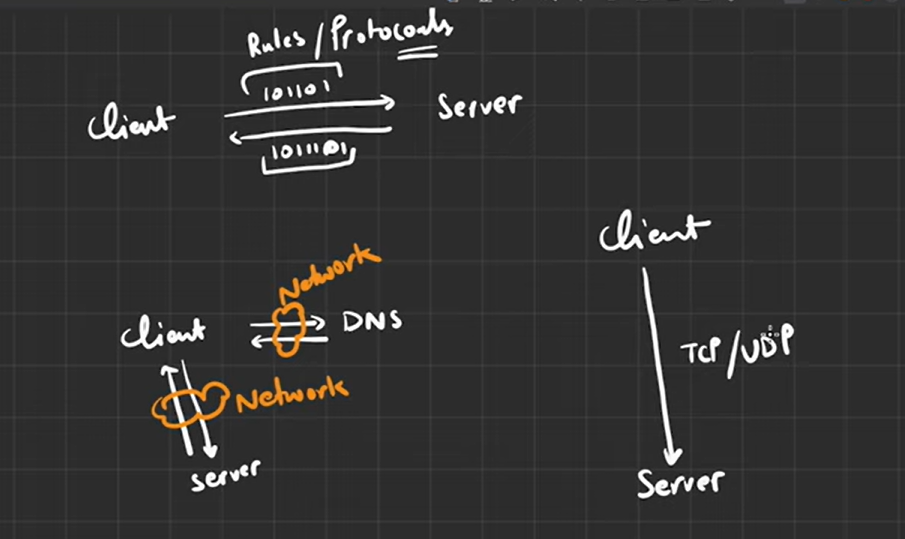 Rules/Protocoals
101101
Client
Server
1011101
Network
Client
DNS
Network
Server
Client
TCP/UDP
Server